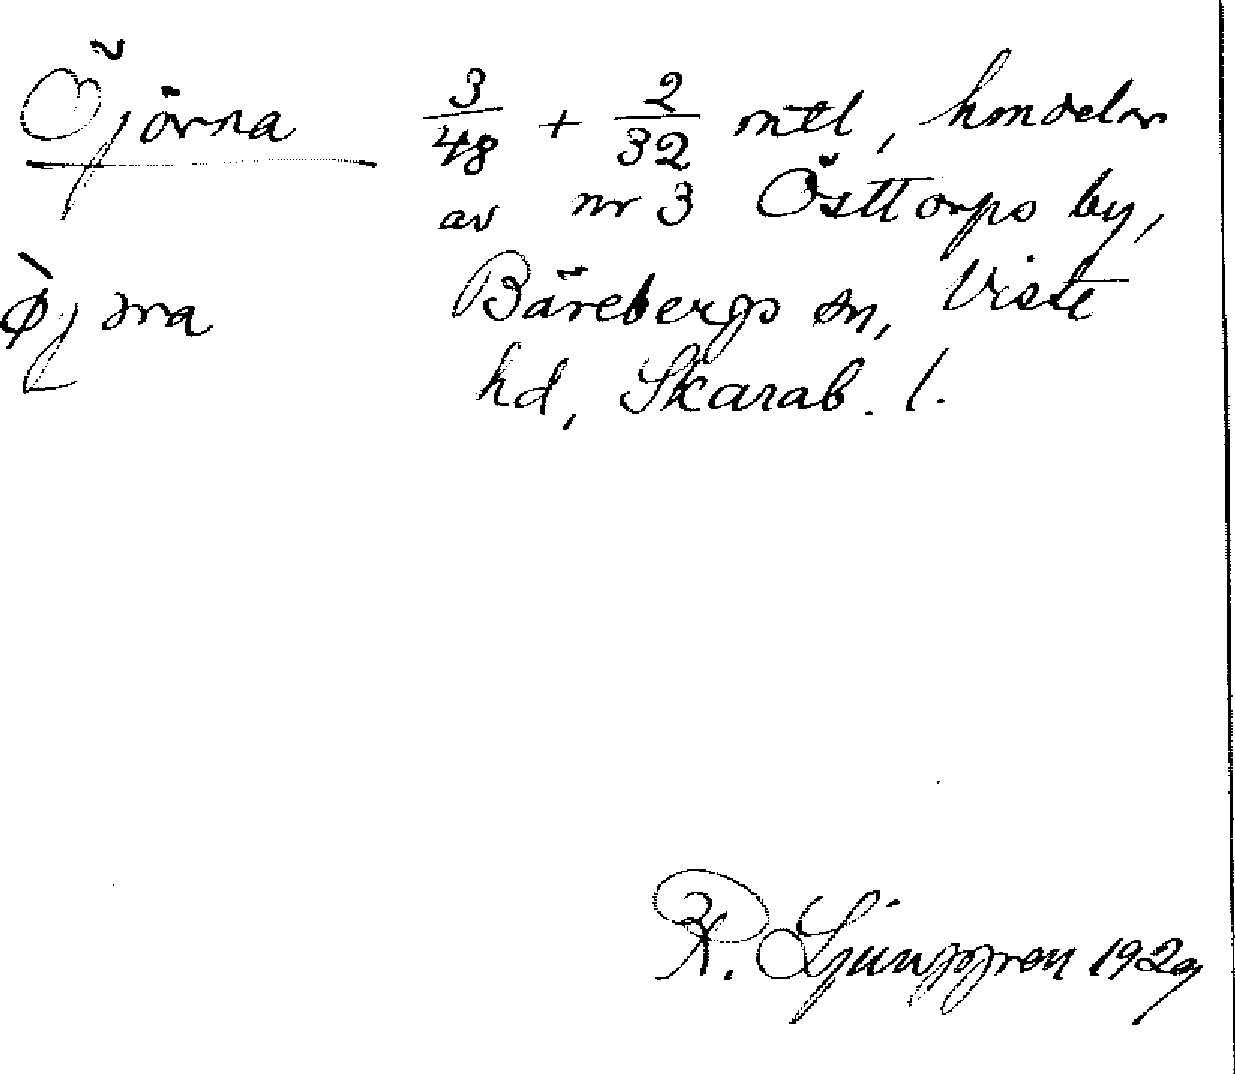 Öjörna 3/48 + 2/32 mtl, hmdelar
av nr 3 Östtorps by,
Bärebergs sn, Viste
hd, Skarab. l.
R. Ljunggren 1929